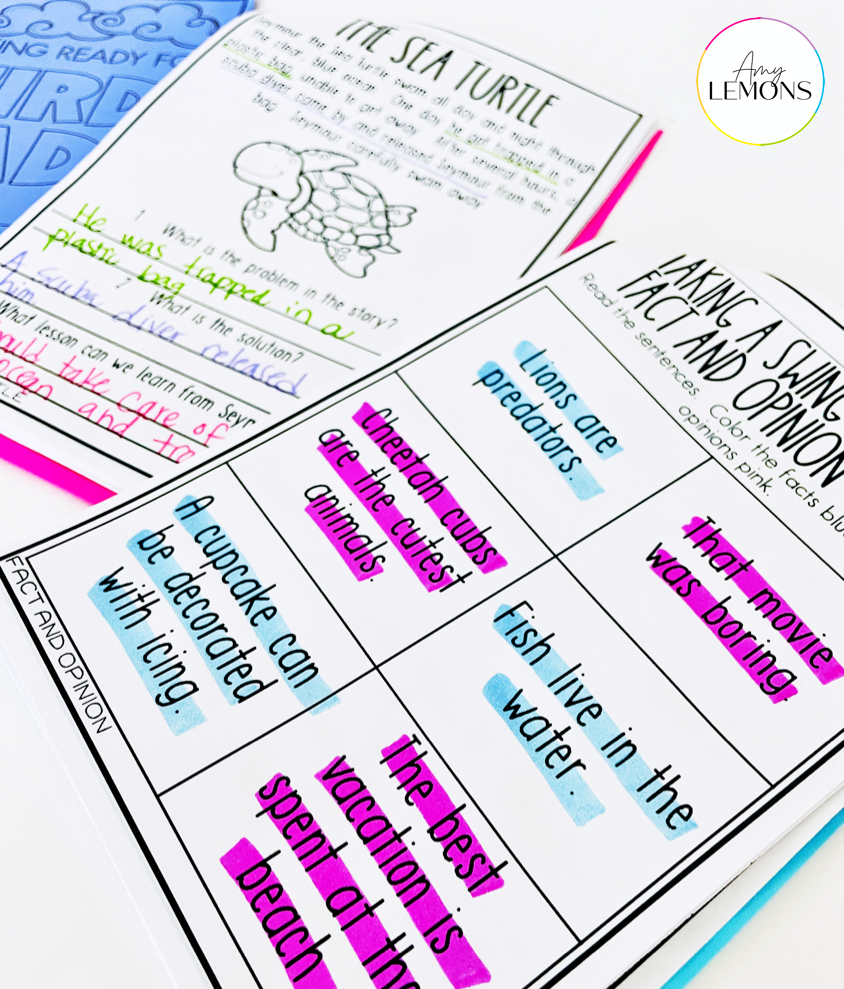 Amy
LEMONS
ING READY FO
THE SEA TURTLE
Seymour the Sea Turtle swam all day and night through
the clear, blue ocean. One day he got trapped in a
plastic bag, unable to get away. After several hours, a
scuba diver came by and released Seymour from the
bag. Seymour carefully swam away
1. What is the problem in the story?
He was trapped in a
plastic bag
? What is the solution?
A scuba diver released
him
What lesson can we learn from Seym
ould take care of
ocean and
TLE
TAKING A SWING
FACT AND OPINION
Read the sentences. Color the facts blu
opinions pink.
Lions are
predators.
That movie
was boring.
Cheetah cubs
are the cutest
animals.
Fish live in the
water.
A cupcake can
be decorated
with icing.
The best
vacation is
spent at the
beach
FACT AND OPINION